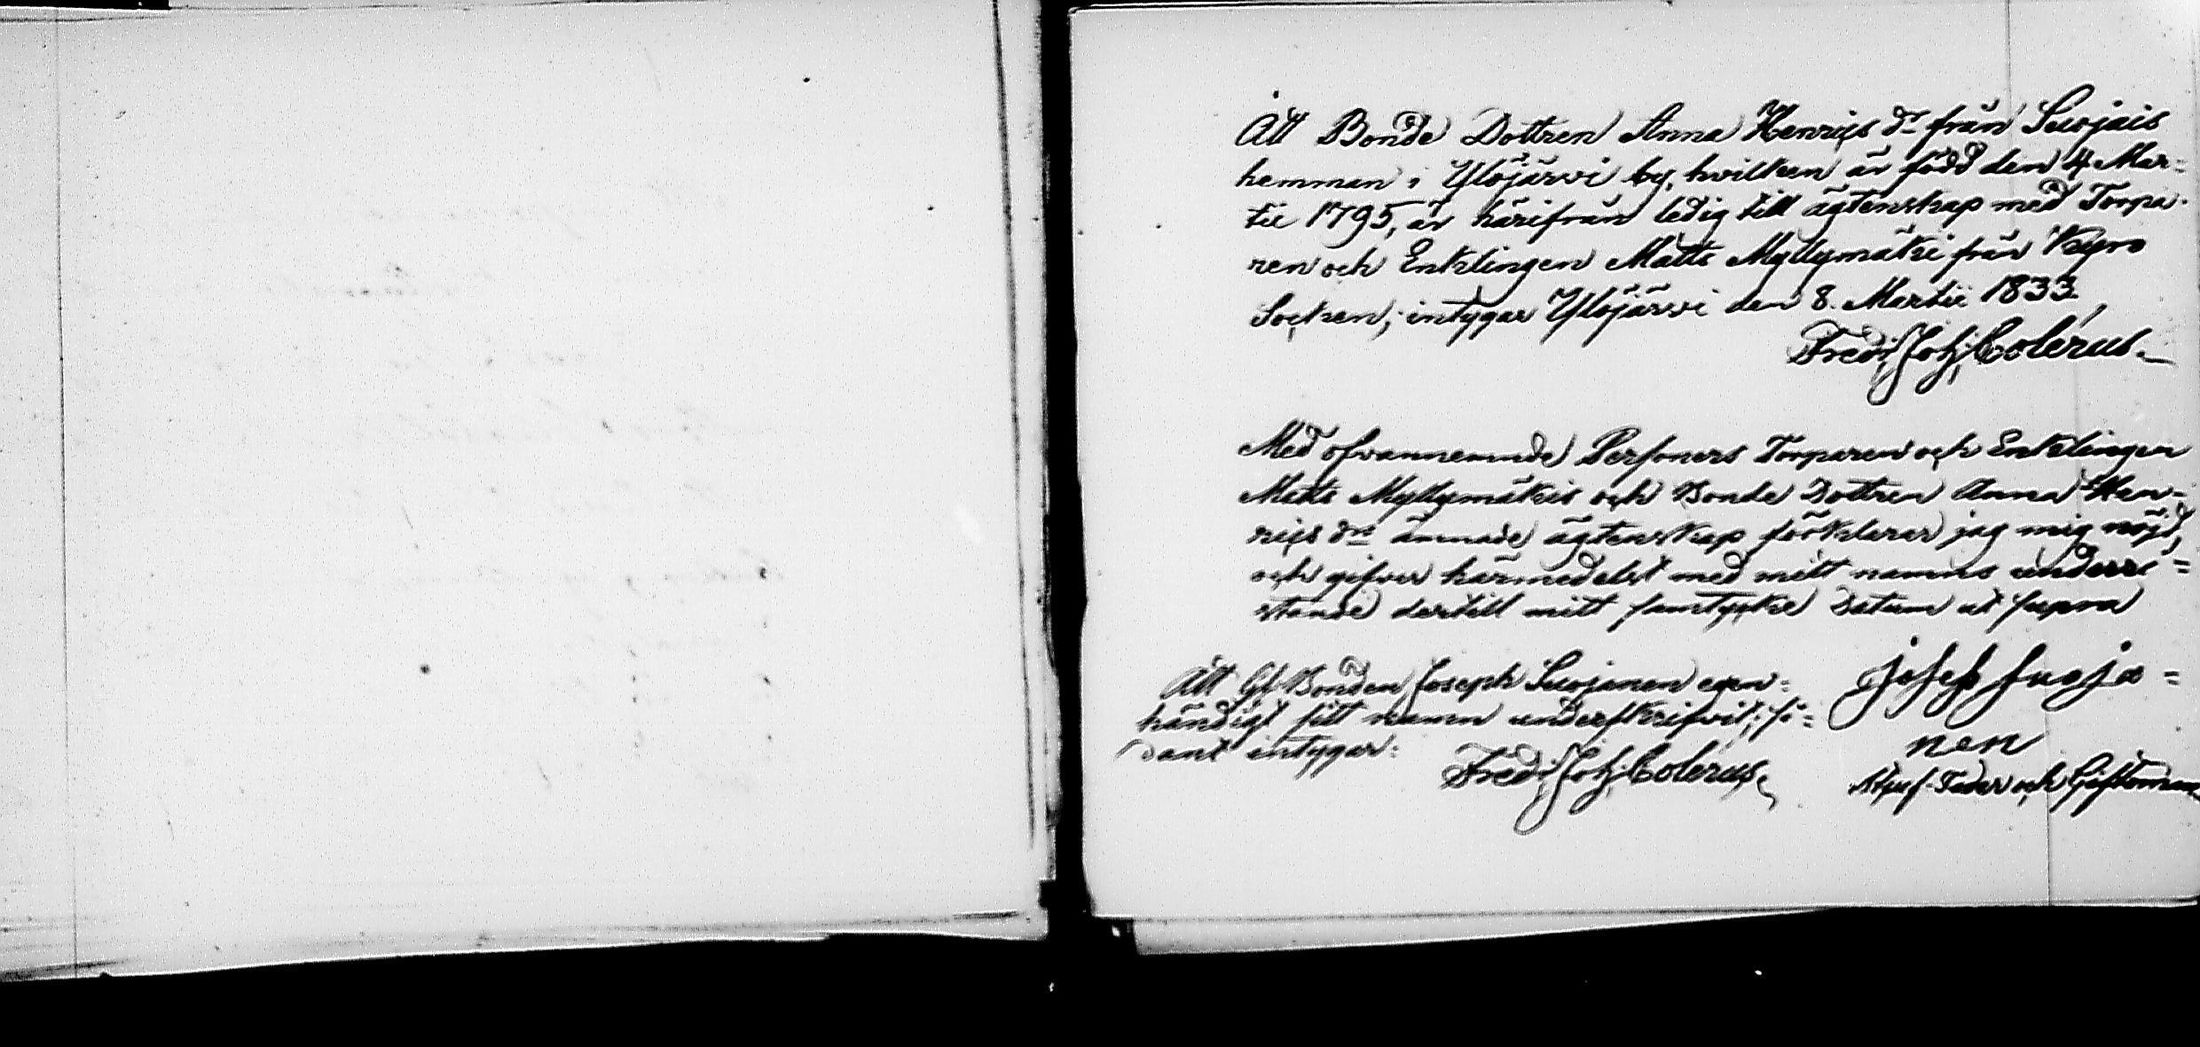 Att Bonde Dottren Anna Henrics dr från Suojais
hemman i Ylöjärvi by, hvilken är född den 4 Mar=
tii 1795, är härifrån ledig till ägtenskap med Torpa-
ren och Enklingen Matts Myllymäki från Kyro
Socken, intygar Ylöjärvi den 8. Martii 1833.
Fredr. Joh. Colérus.
Med ofvannemnde Personers Torparen och Enklingen
Matts Myllymäkis och Bonde Dottren Anna Hen=
rics drs ämnade ägtenskap förklarar jag mig nöjd,
och gifver härmedelst med mitt namns underr=
stande dertill mitt samtycke Datum ut supra
josep suoja=
nen
Stjuf-Fader och Giftoman
Att Gl. Bonden Joseph Suojanen egen=
händigt sitt namn underskrifvit, så=
dant intygar:
Fredr. Joh. Colérus.